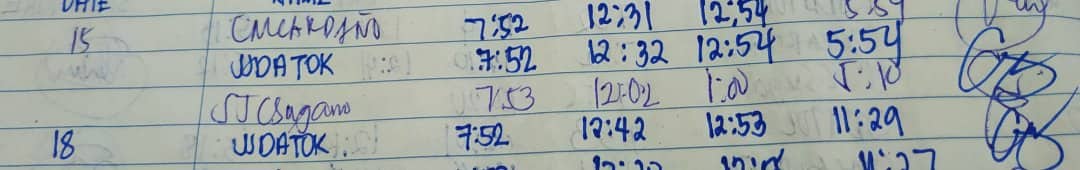 DATE NAME
15 7:52 12:31 12:54 5:54
WDATOK 7:52 12:32 12:54 5:54
7:53 12:02 1:00 5:10
18 WDATOK 7:52 12:42 12:53 11:29
11:27